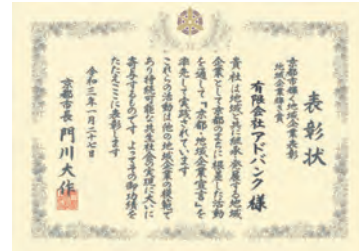 表彰状
京都市輝く地域企業表彰
地域企業輝き賞
有限会社アドバンク 様
貴社は地域と共に継承発展する地域
企業として京都のまちに根差した活動
を通して「京都・地域企業宣言」を
率先して実践されています
これらの活動は他の地域企業の模範で
あり持続可能な共生社会の実現に大いに
寄与するものです よってその御功績を
たたえここに表彰します
令和三年一月二十七日
京都市長 門川大作